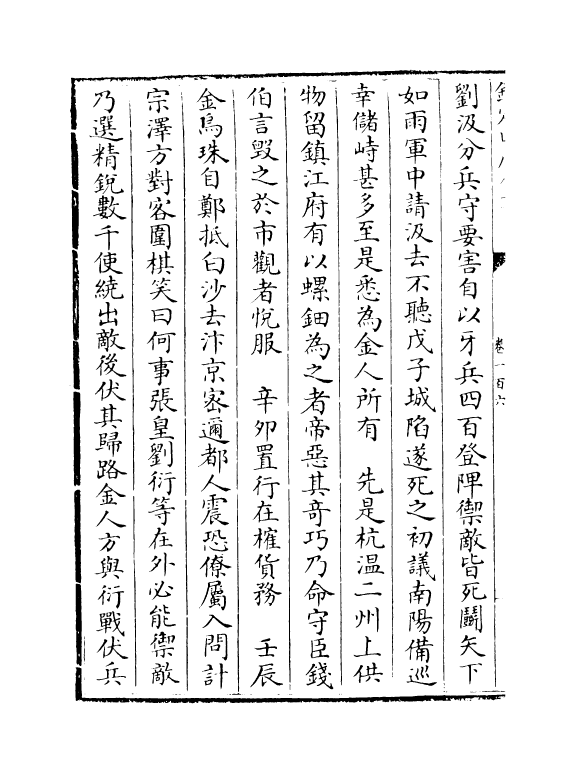 劉汲分兵守要害自以牙兵四百登陴禦敵皆死鬭矢下
如雨軍中請汲去不聽戊子城陷遂死之初議南陽備巡
幸儲峙甚多至是悉為金人所有　先是杭温二州上供
物留鎮江府有以螺鈿為之者帝惡其奇巧乃命守臣錢
伯言毀之於市觀者悅服　辛卯置行在榷貨務　壬辰
金烏珠自鄭抵白沙去汴京密邇都人震恐僚屬入問計
宗澤方對客圍棋笑曰何事張皇劉衍等在外必能禦敵
乃選精銳數千使繞出敵後伏其歸路金人方與衍戰伏兵
卷一百六